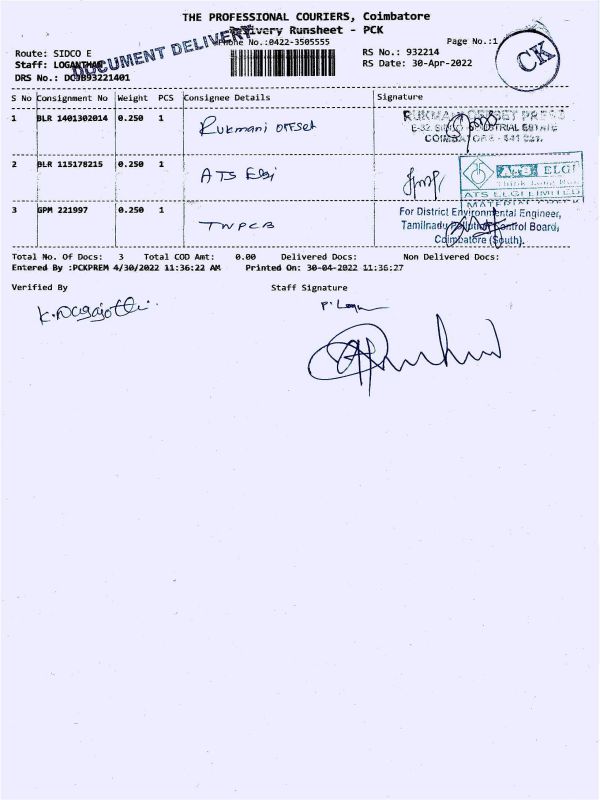 THE PROFESSIONAL COURIERS, Coimbatore
Delivery Runsheet - PCK
Phone No.:0422-3505555
Page No.:1
Route: SIDCO E
RS No.: 932214
Staff: LOGANTHAN
RS Date: 30-Apr-2022
DRS No.: DC3B93221401
DOCUMENT DELIVERY
CK
S No Consignment No Weight PCS Consignee Details Signature
1 BLR 1401302014 0.250 1 Rukmani offset
RUKMANI OFFSET PRESS
E-32, SIDCO INDUSTRIAL ESTATE
COIMBATORE - 641 021.
2 BLR 115178215 0.250 1 ATS Elgi
ATS ELGI
ATS ELGI LIMITED
3 GPM 221997 0.250 1 TNPCB
For District Environmental Engineer,
Tamilnadu Pollution Control Board,
Coimbatore (South).
Total No. Of Docs: 3 Total COD Amt: 0.00 Delivered Docs: Non Delivered Docs:
Entered By :PCKPREM 4/30/2022 11:36:22 AM Printed On: 30-04-2022 11:36:27
Verified By Staff Signature